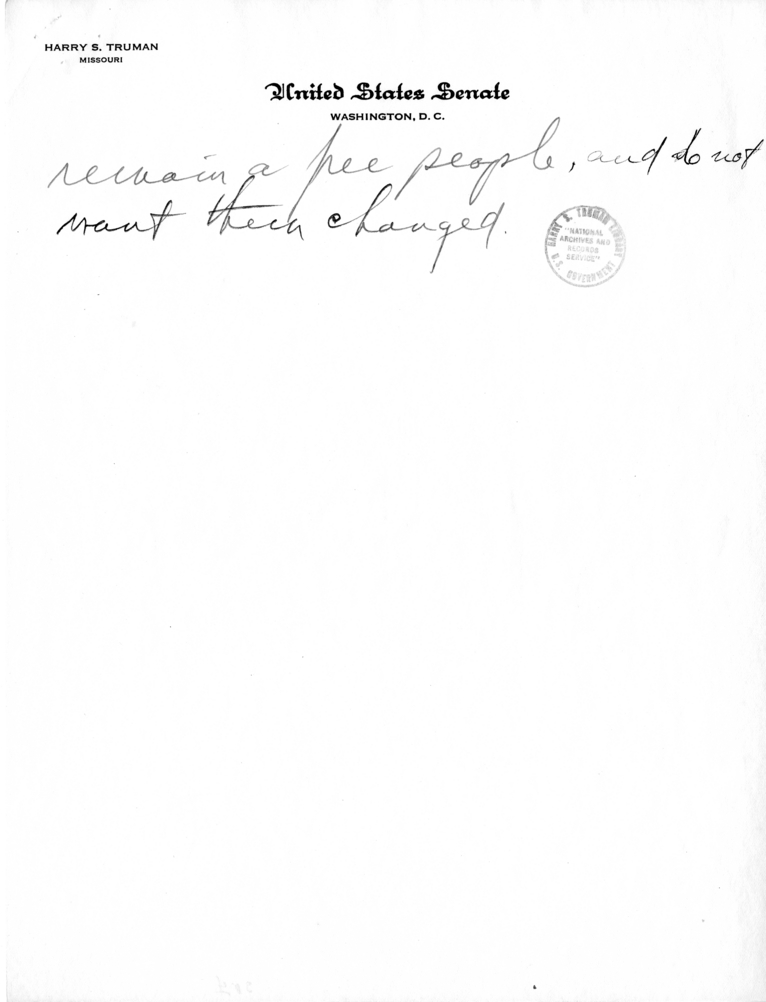 HARRY S. TRUMAN
MISSOURI
United States Senate
WASHINGTON, D. C.
remain a free people, and do not
want them changed.
HARRY S. TRUMAN LIBRARY
"NATIONAL
ARCHIVES AND
RECORDS
SERVICE"
U.S. GOVERNMENT